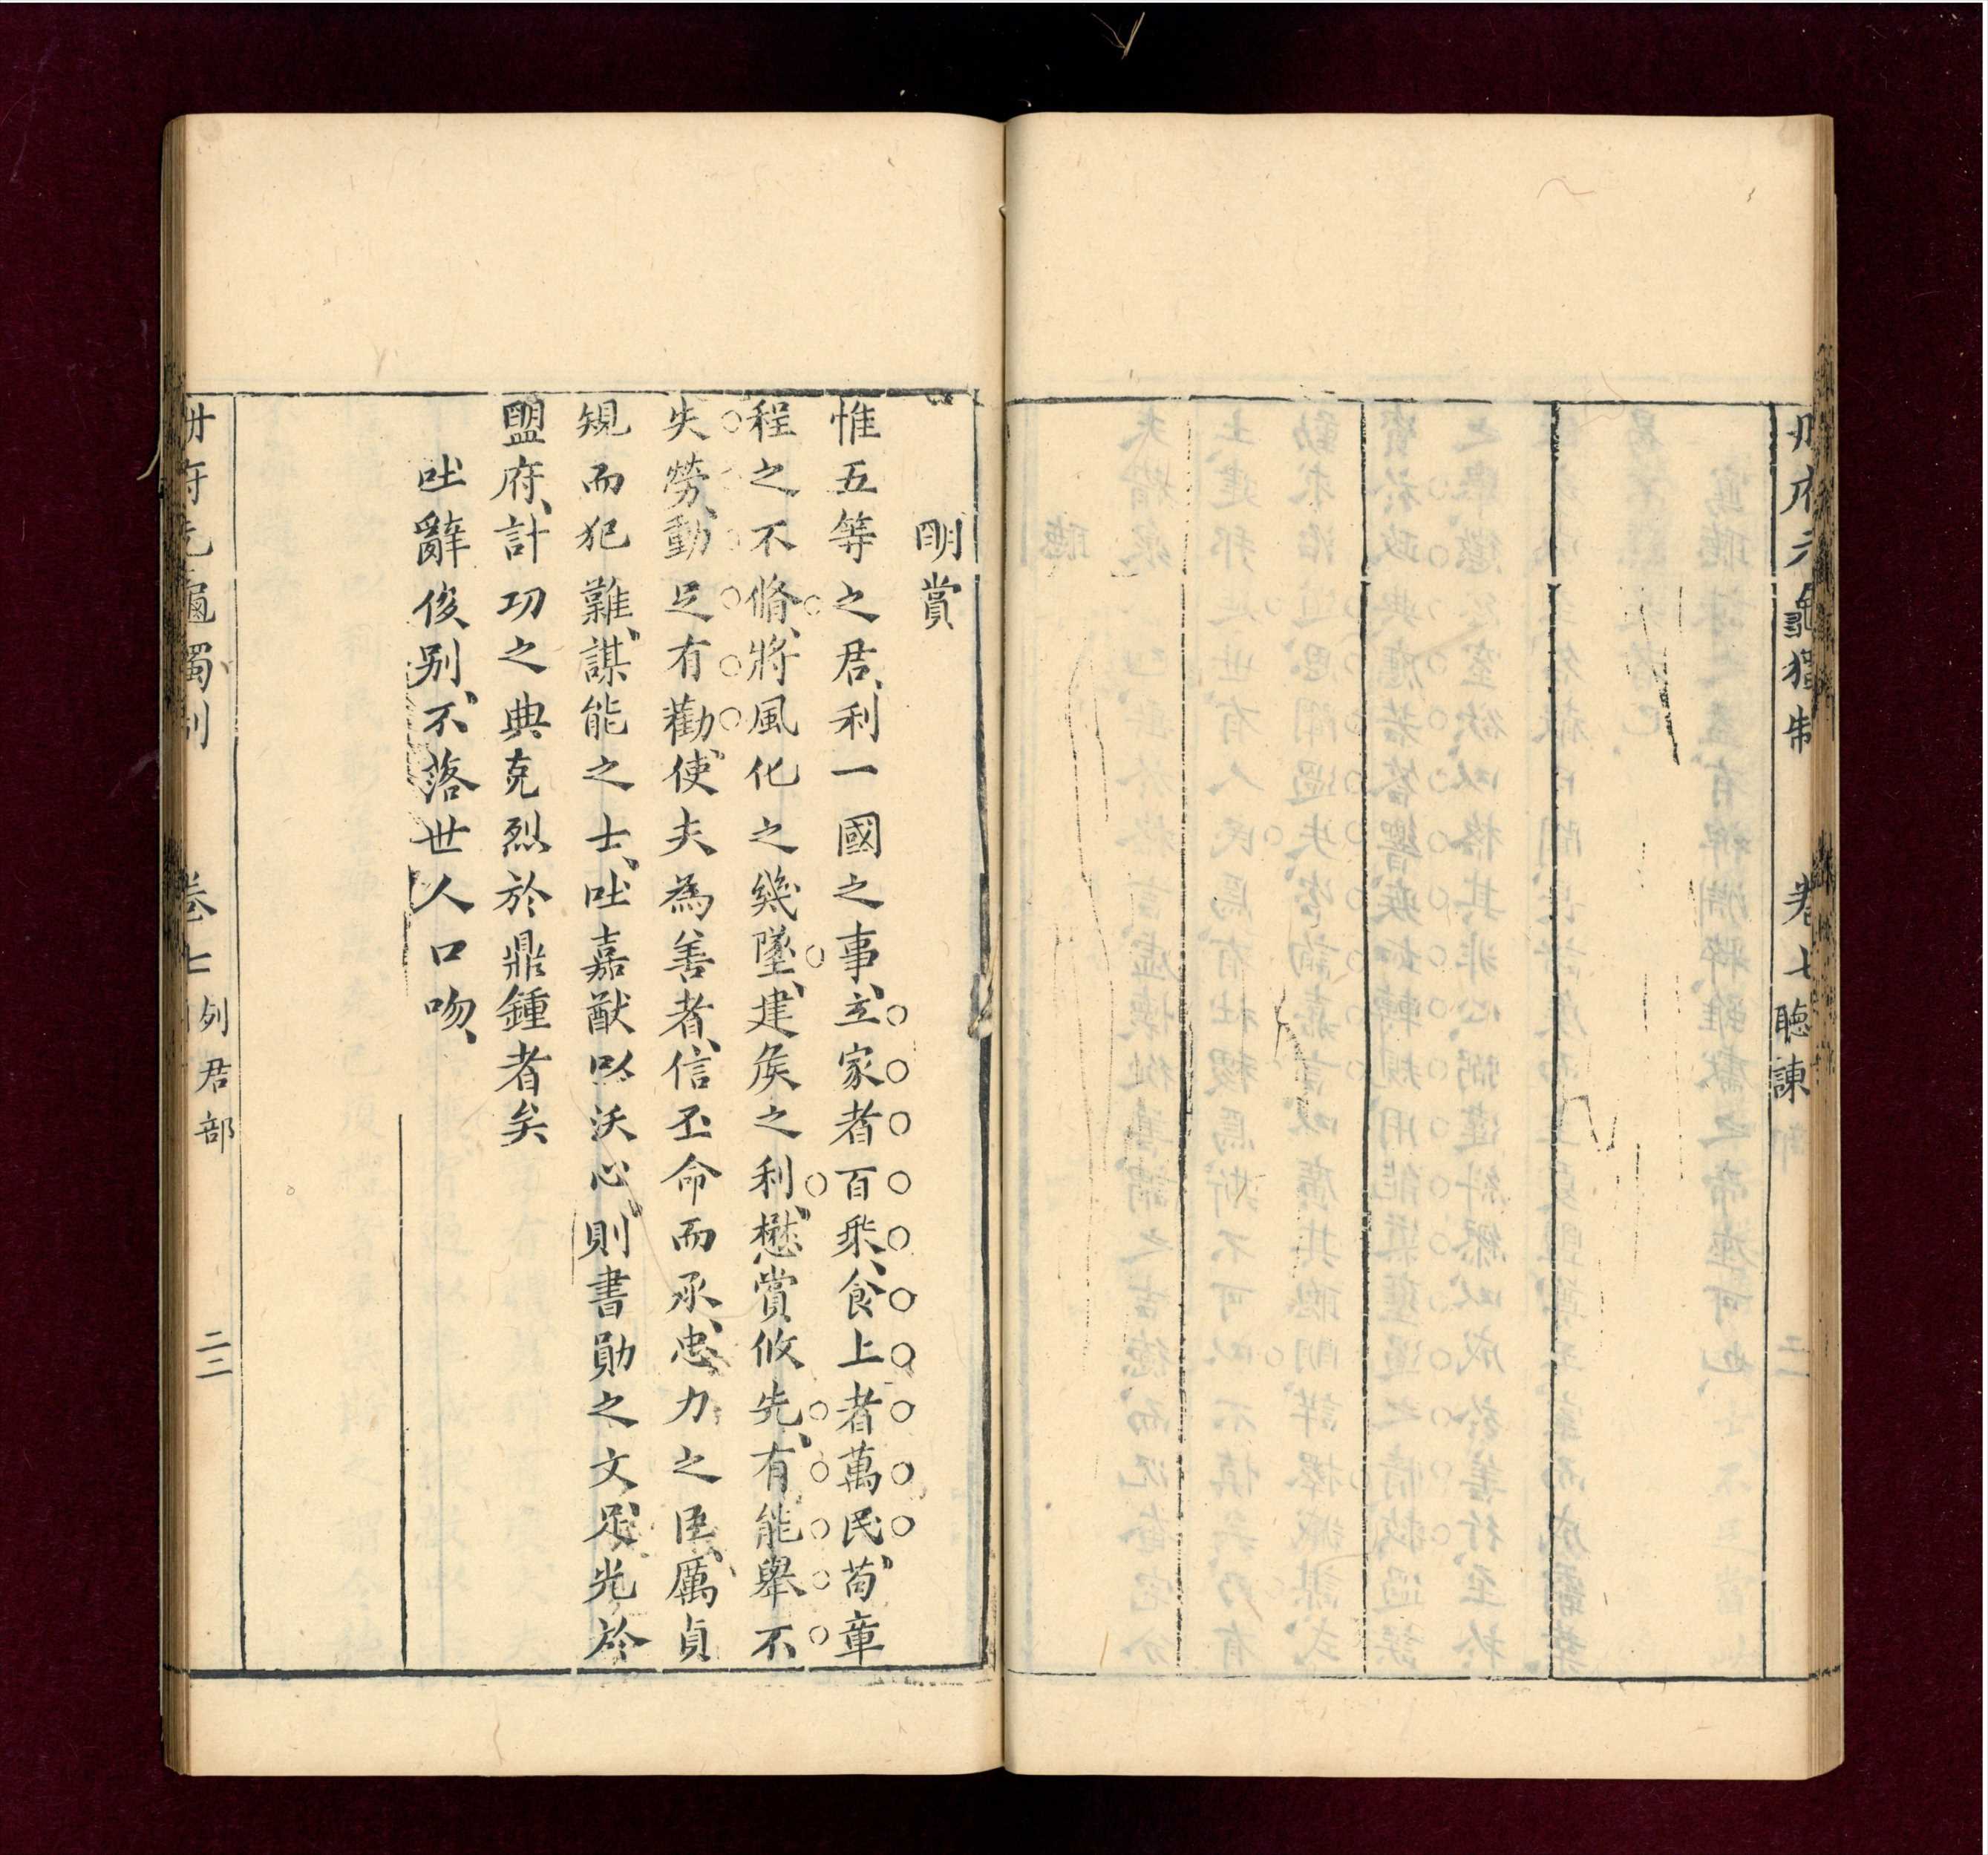 冊府元龜獨制 卷七 聽諫
明賞
惟五等之君、利一國之事、立家者百乘、食上者萬民、茍章
程之不脩、將風化之幾墜、建矦之利、懋賞攸先、有能舉不
失勞、動足有勸、使夫為善者、信丕命而承、忠力之臣、厲貞
規而犯難、謀能之士、吐嘉猷以沃心、則書勛之文、足光於
盟府、計功之典克烈於鼎鍾者矣
吐辭俊别、不落世人口吻、
冊府元龜獨制 卷七 列君部 二二